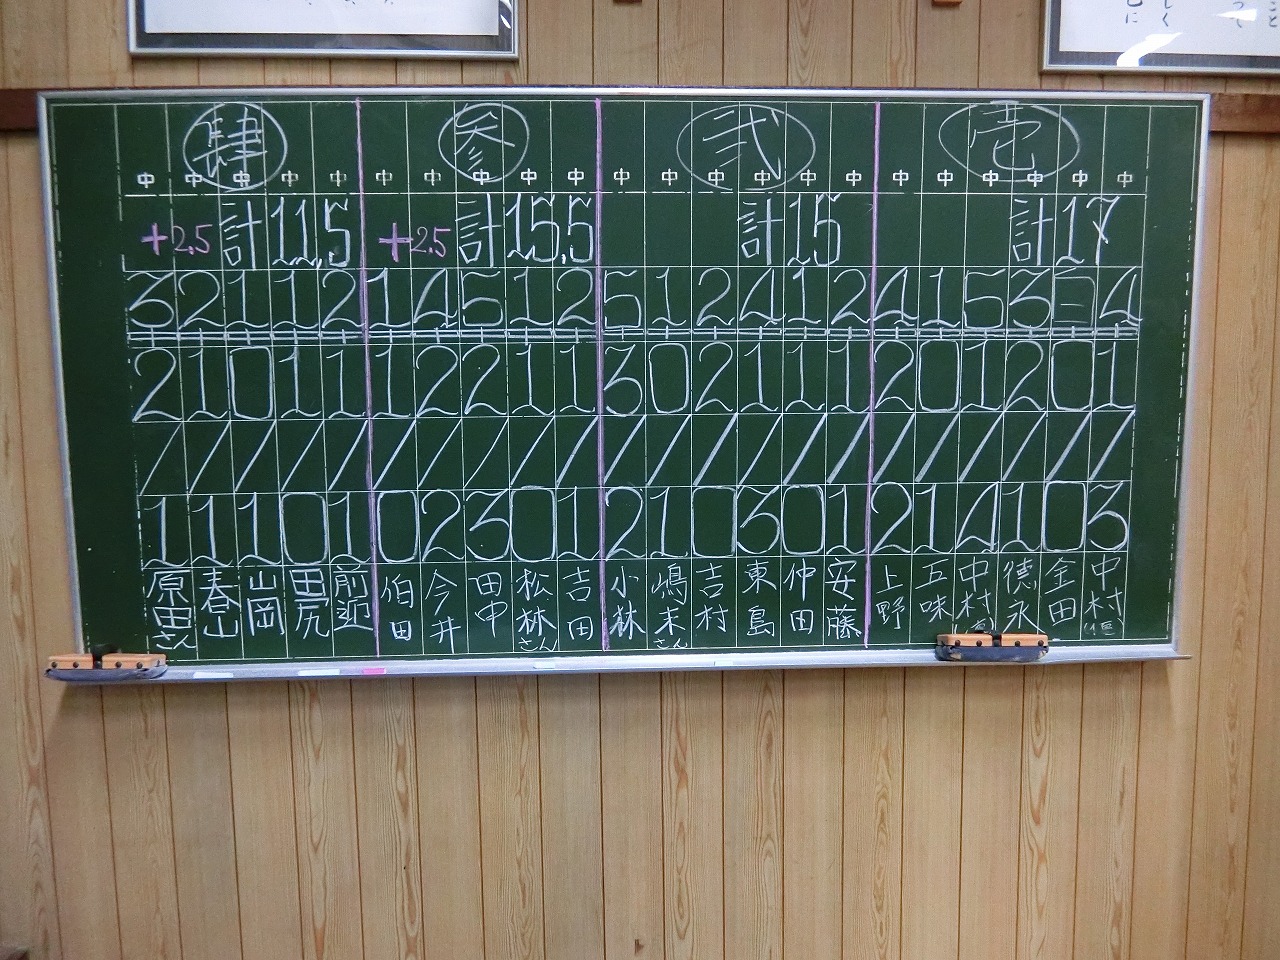 肆 参 弐 壱
中 中 中 中 中 中 中 中 中 中 中 中 中 中 中 中 中 中 中 中 中 中
+2.5 計11.5 +2.5 計15.5 計15 計17
3 2 1 1 2 1 4 5 1 2 5 1 2 4 1 2 4 1 5 3 一 4
2 1 0 1 1 1 2 2 1 1 3 0 2 1 1 1 2 0 1 2 0 1
/ / / / / / / / / / / / / / / / / / / / / /
1 1 1 0 1 0 2 3 0 1 2 1 0 3 0 1 2 1 4 1 0 3
原田さん 春山 山岡 田尻 前近 伯田 今井 田中 松林さん 吉田 小林 嶋末さん 吉村 東島 仲田 安藤 上野 五味 中村 徳永 金田 中村